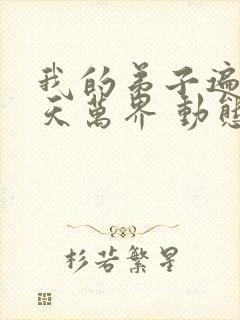 我的弟子遍
天萬界 動態
杉若繁星